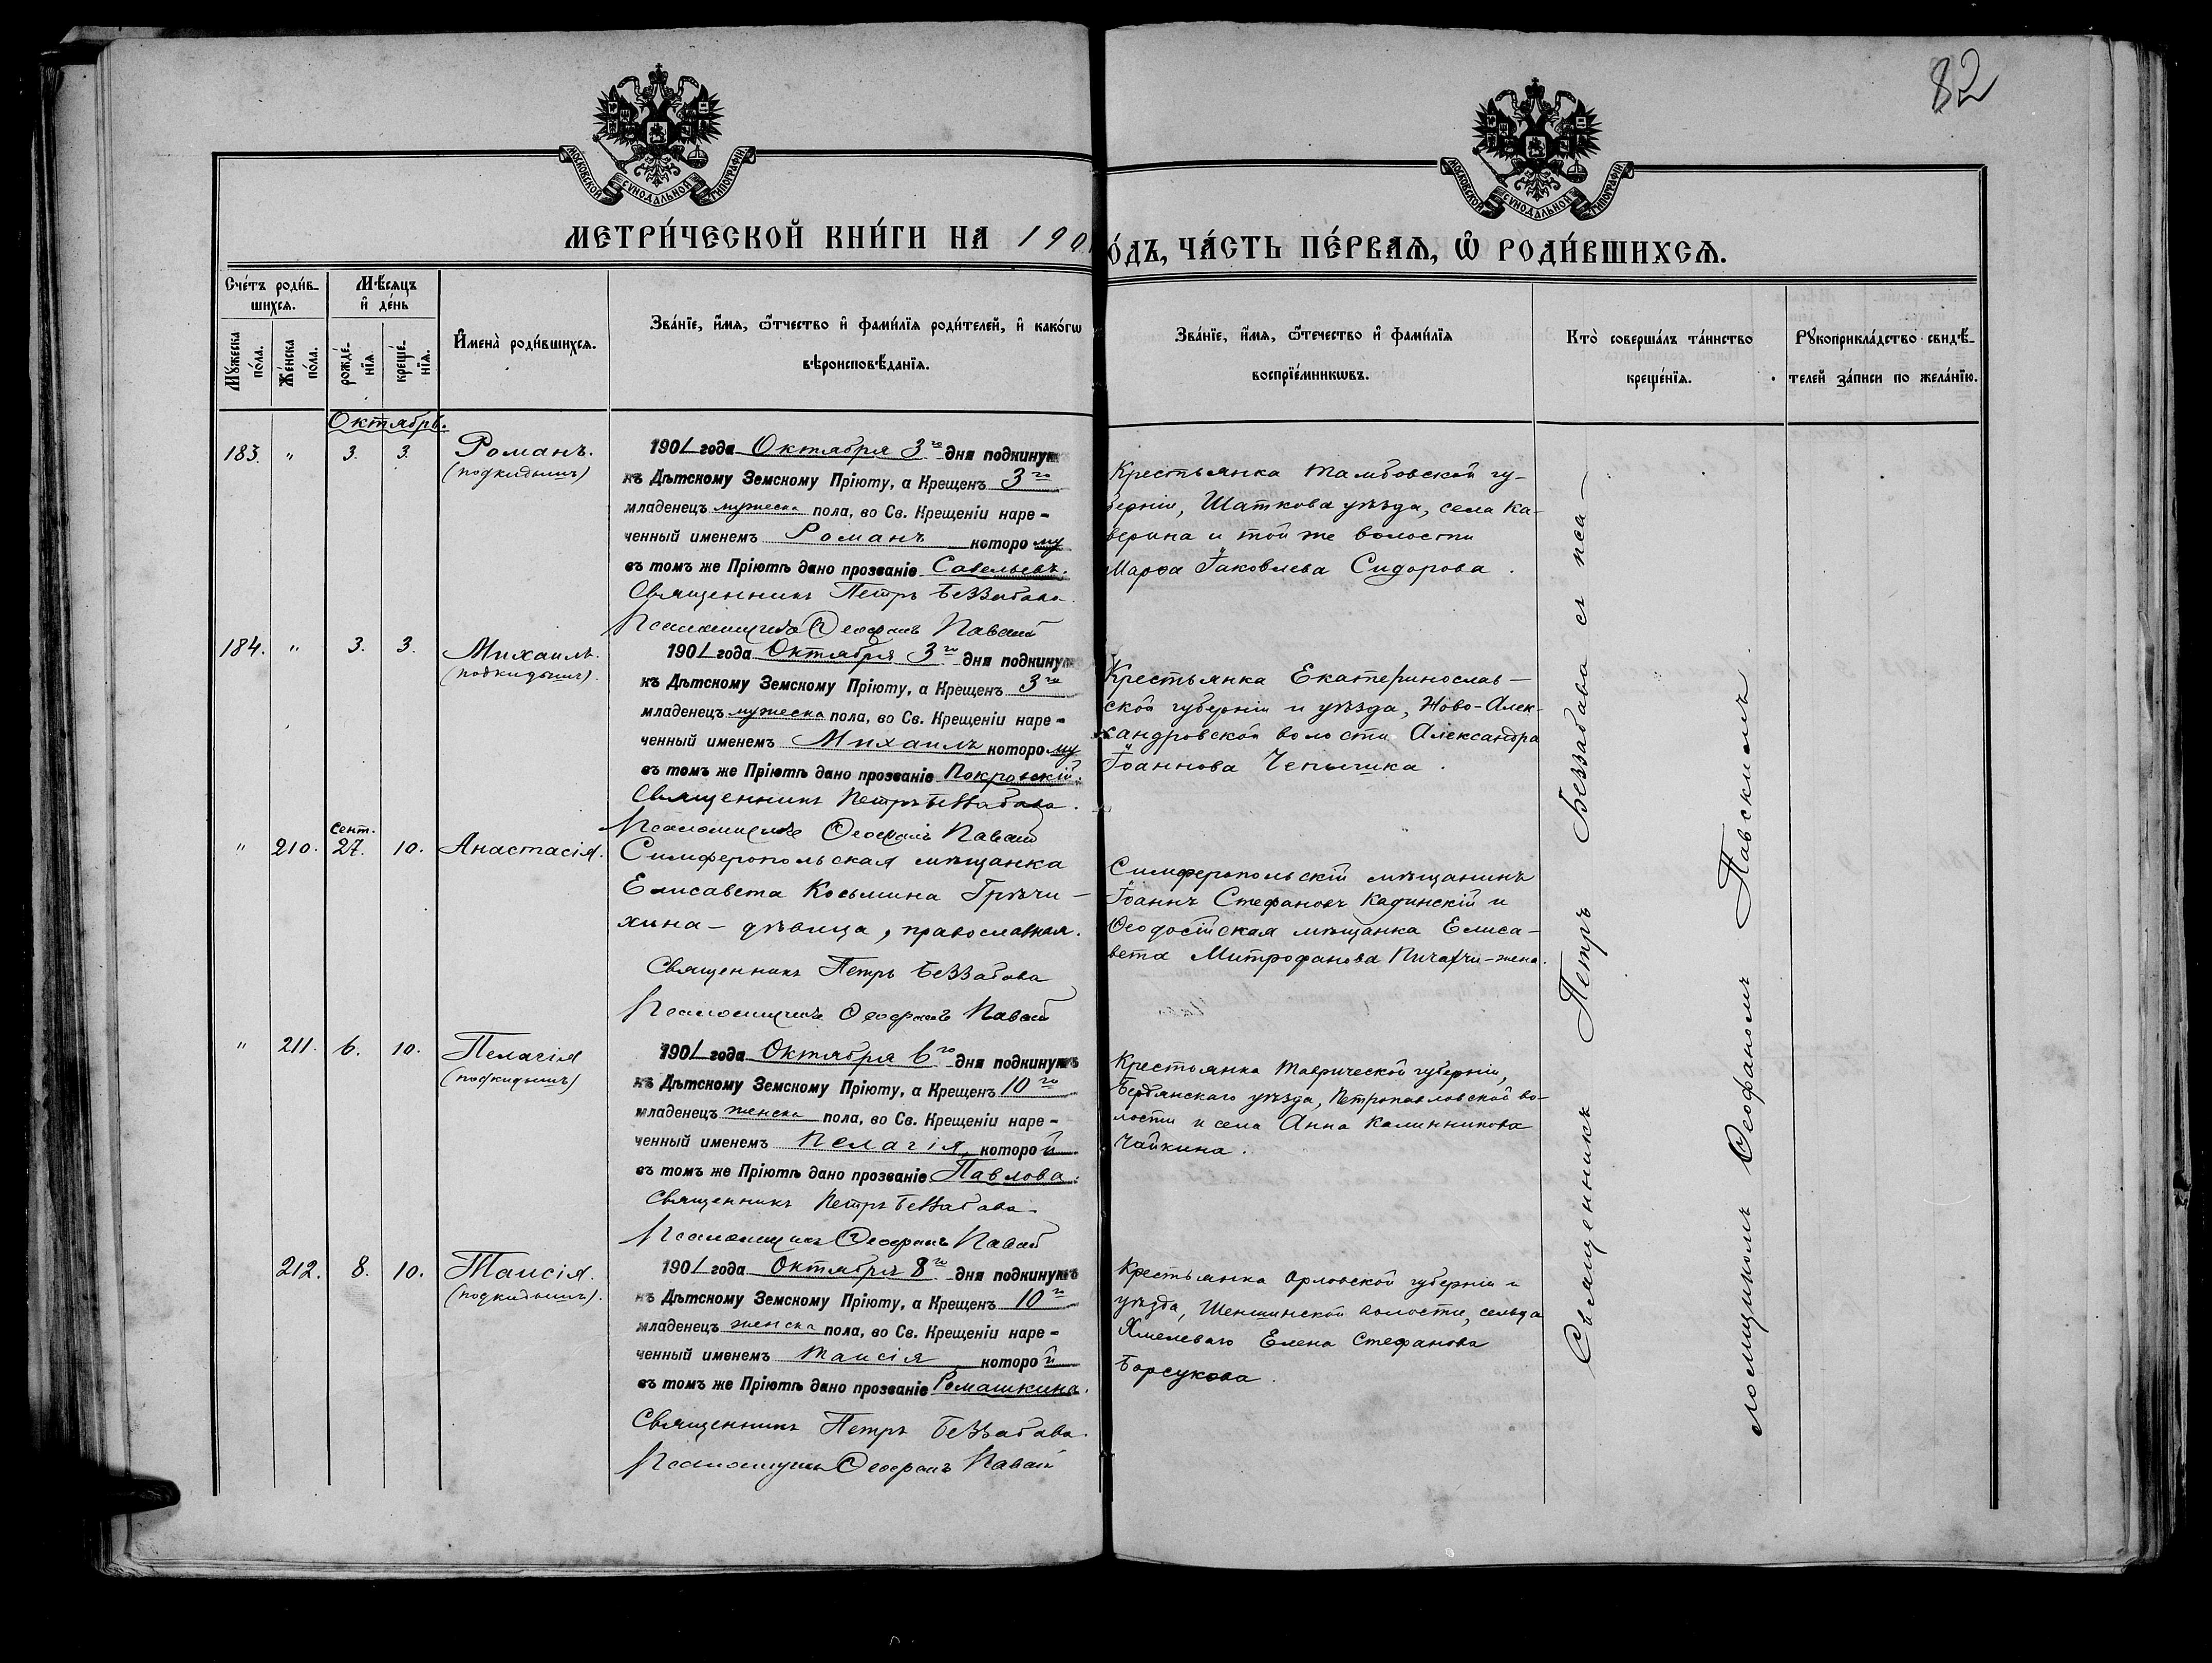 82
МОСКОВСКОЙ СУНОДАЛЬНОЙ ТИПОГРАФІИ
МОСКОВСКОЙ СУНОДАЛЬНОЙ ТИПОГРАФІИ
МЕТРИ́ЧЕСКОЙ КНИ́ГИ НА 190
О́ДЪ, ЧА́СТЬ ПЕ́РВАѦ, Ѽ РОДИ́ВШИХСѦ.
Сче́тъ роди́в-
шихсѧ.
Мꙋ́жеска
по́ла.
Же́нска
по́ла.
Мѣ́сѧцъ
и҆ де́нь
рожде́-
нїѧ
креще́-
нїѧ.
И҆мена̀ роди́вшихсѧ.
Зва́нїе, и҆́мѧ, ѻ҆́тчество и҆ фами́лїѧ роди́телей, и҆ како́гѡ
вѣроисповѣ́данїѧ.
Зва́нїе, и҆́мѧ, ѻ҆́течество и҆ фами́лїѧ
воспрїе́мникѡвъ.
Кто̀ соверша́лъ та́инство
креще́нїѧ.
Рꙋкоприкла́дство свидѣ́-
телей за́писи по жела́нїю.
Октябрь.
183. " 3. 3. Романъ.
(подкидышъ)
1901 года Октября 3го дня подкинутъ
къ Дѣтскому Земскому Пріюту, а Крещенъ 3го
младенецъ мужеска пола, во Св. Крещеніи наре-
ченный именемъ Романъ которому
въ томъ же Пріютѣ дано прозваніе Савельевъ.
Священникъ Петръ Беззабава.
Псаломщикъ Ѳеофанъ Павскій
Крестьянка Тамбовской гу-
берніи, Шаткова уѣзда, села Ка-
верина и той же волости
Марѳа Іаковлева Сидорова.
184. " 3. 3. Михаилъ.
(подкидышъ).
1901 года Октября 3го дня подкинутъ
къ Дѣтскому Земскому Пріюту, а Крещенъ 3го
младенецъ мужеска пола, во Св. Крещеніи наре-
ченный именемъ Михаилъ которому
въ томъ же Пріютѣ дано прозваніе Покровскій.
Священникъ Петръ Беззабава.
Псаломщикъ Ѳеофанъ Павскій
Крестьянка Екатеринослав-
ской губерніи и уѣзда, Ново-Алек-
сандровской волости Александра
Іоаннова
Сент.
" 210. 27. 10. Анастасія.
Симферопольская мѣщанка
Елисавета Косьмина Грѣчи-
хина - дѣвица, православная.
Священникъ Петръ Беззабава
Псаломщикъ Ѳеофанъ Павскій
Симферопольскій мѣщанинъ
Іоаннъ Стефановъ Кадинскій и
Ѳеодосійская мѣщанка Елиса-
вета Митрофанова
" 211. 6. 10. Пелагія
(подкидышъ)
1901 года Октября 6го дня подкинутъ
къ Дѣтскому Земскому Пріюту, а Крещенъ 10го
младенецъ женска пола, во Св. Крещеніи наре-
ченный именемъ Пелагія, которой
въ томъ же Пріютѣ дано прозваніе Павлова.
Священникъ Петръ Беззабава.
Псаломщикъ Ѳеофанъ Павскій
Крестьянка Таврической губерніи,
Бердянскаго уѣзда, Петропавловской во-
лости и села Анна Калинникова
Чайкина.
212. 8. 10. Таисія.
(подкидышъ).
1901 года Октября 8го дня подкинутъ
къ Дѣтскому Земскому Пріюту, а Крещенъ 10го
младенецъ женска пола, во Св. Крещеніи наре-
ченный именемъ Таисія которой
въ томъ же Пріютѣ дано прозваніе Ромашкина.
Священникъ Петръ Беззабава.
Псаломщикъ Ѳеофанъ Павскій
Крестьянка Орловской губерніи и
уѣзда, Шеншинской волости, сельца
Хмелеваго Елена Стефанова
Борсукова.
Священникъ Петръ Беззабава съ пса-
ломщикомъ Ѳеофаномъ Павскимъ.